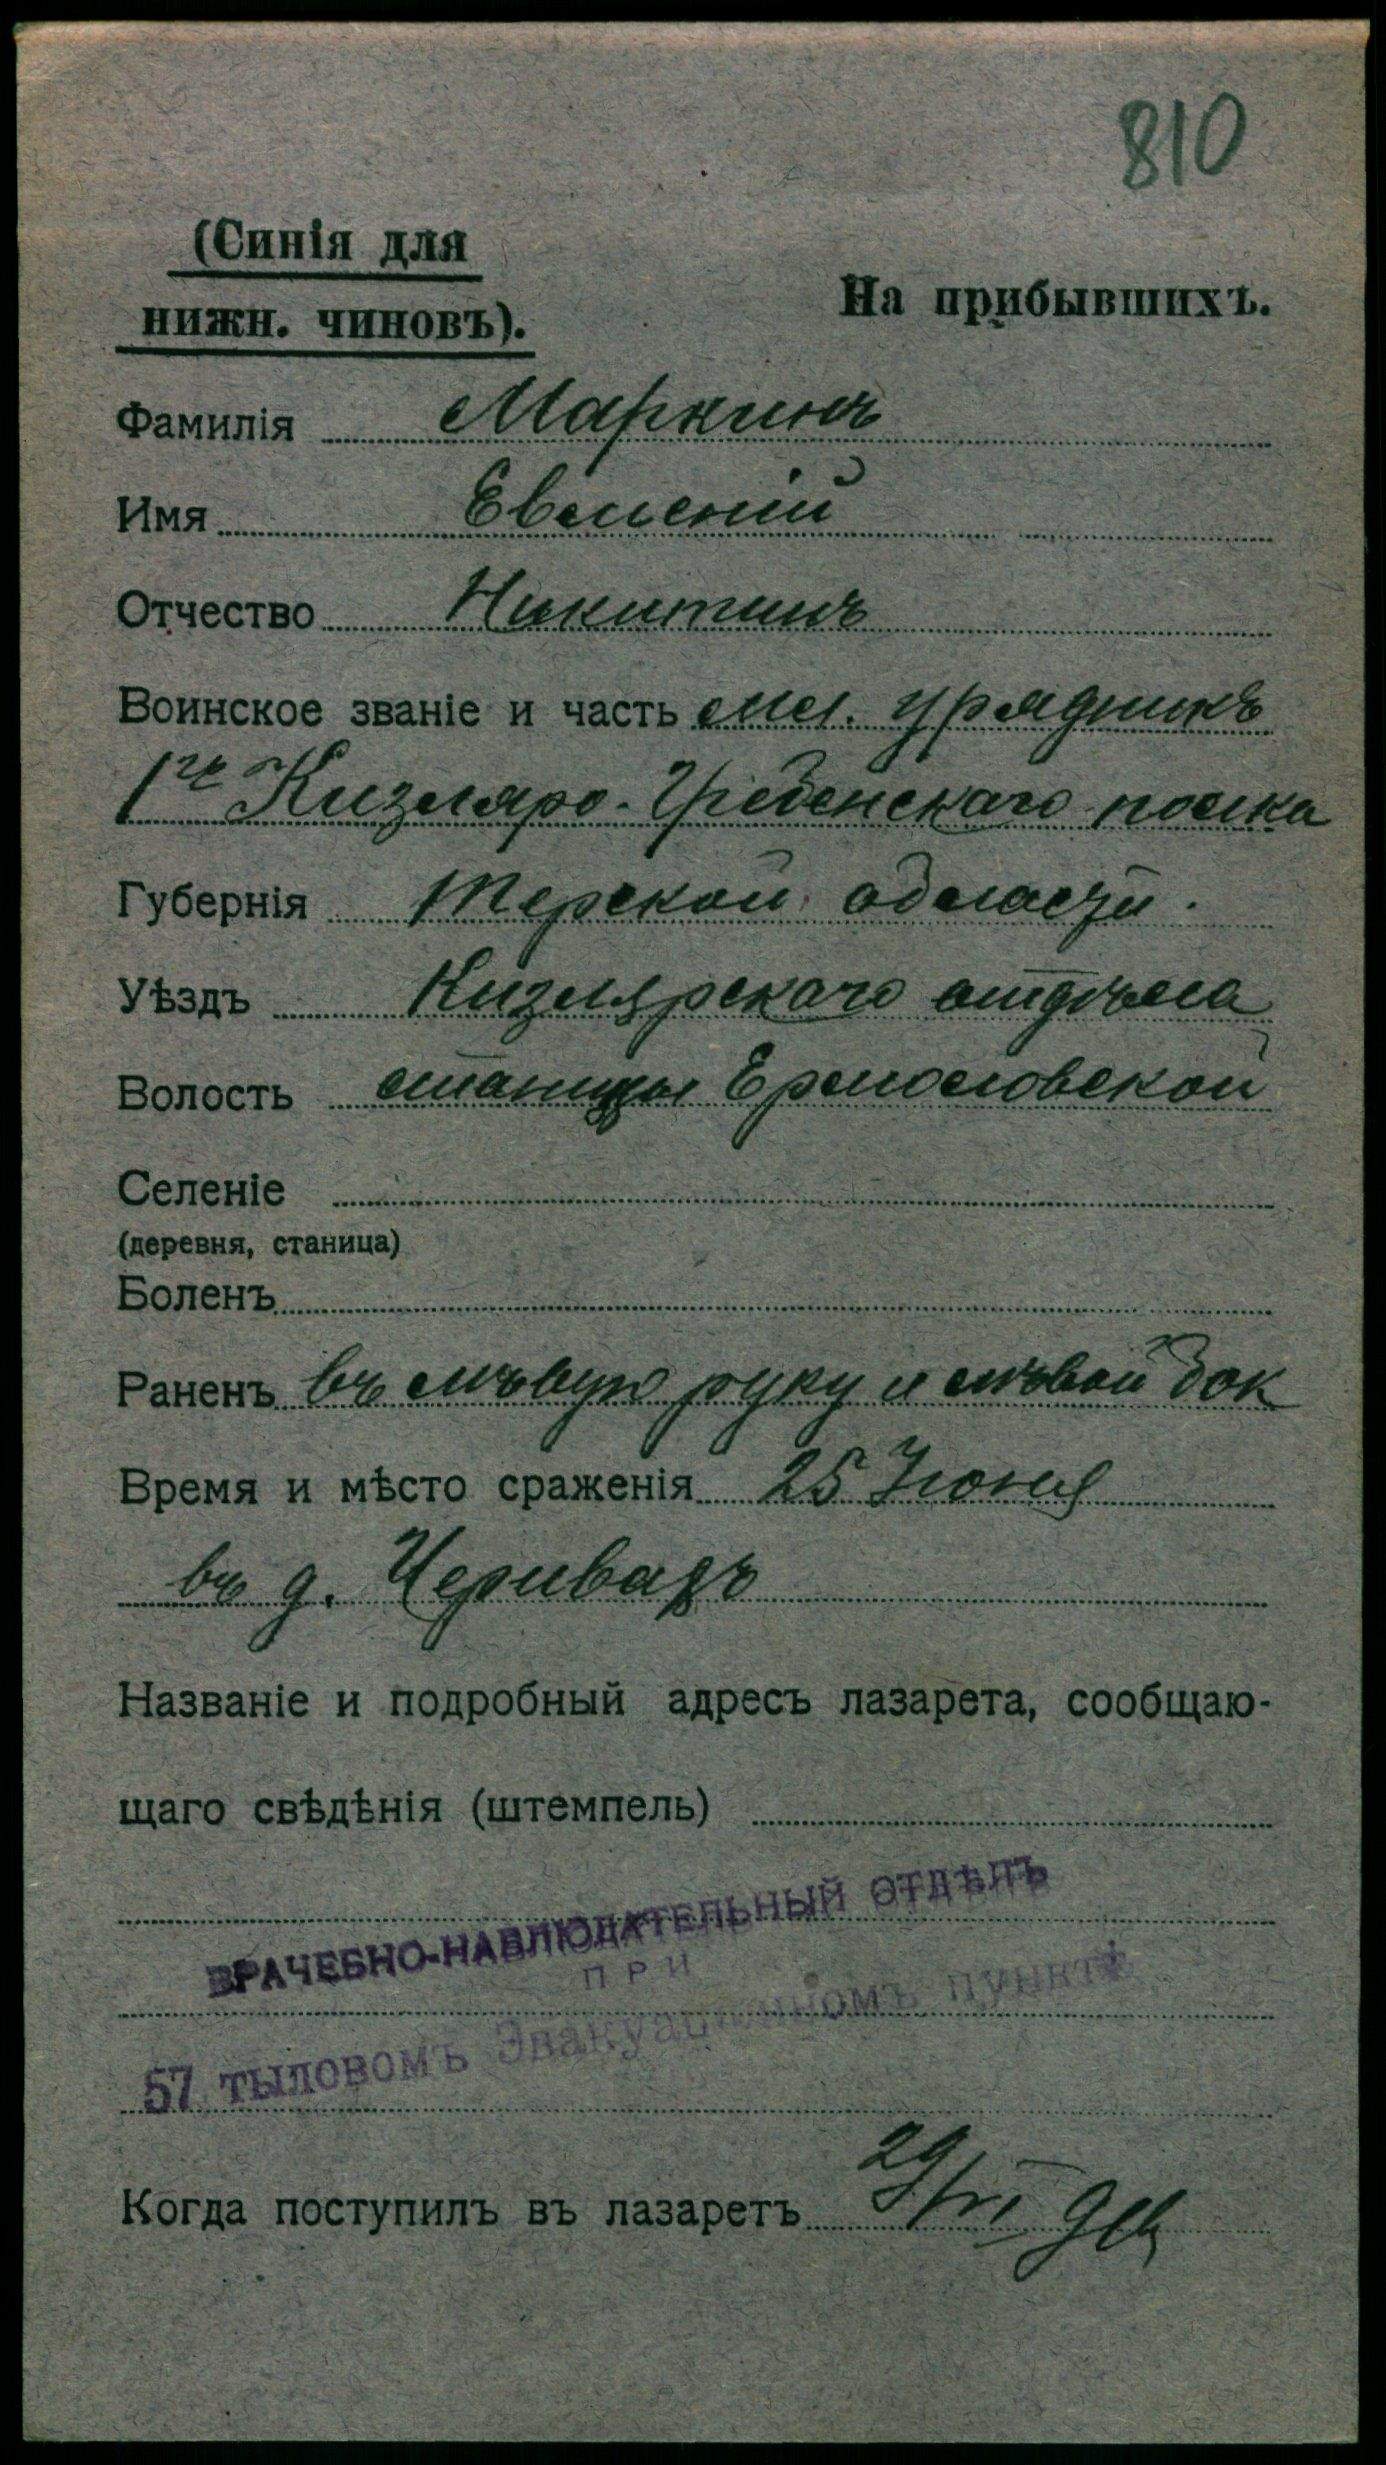 810
(Синія для
нижн. чиновъ).
На прибывшихъ.
Фамилія Маркинъ
Имя Евменій
Отчество Никитинъ
Воинское званіе и часть мл. урядникъ
1го Кизляро-Гребенскаго полка
Губернія Терской области.
Уѣздъ Кизлярскаго отдѣла
Волость станицы Ермоловской
Селеніе
(деревня, станица)
Боленъ
Раненъ въ лѣвую руку и лѣвой бок
Время и мѣсто сраженія 25 Июня
въ д. Черивадъ
Названіе и подробный адресъ лазарета, сообщаю-
щаго свѣдѣнія (штемпель)
ВРАЧЕБНО-НАБЛЮДАТЕЛЬНЫЙ ОТДѢЛЪ
ПРИ
57 тыловомъ Эвакуаціонномъ пунктѣ
Когда поступилъ въ лазаретъ 29/VI